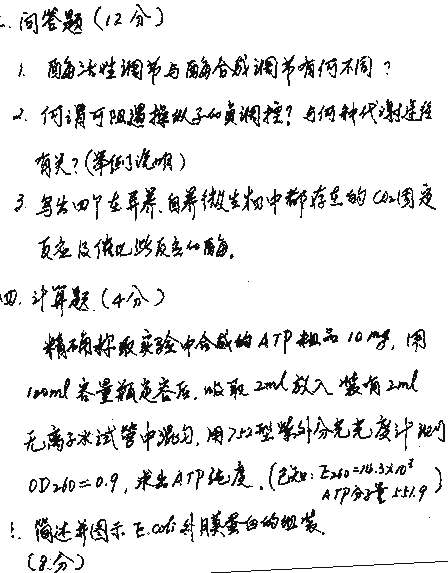 问答题(12分)
1. 酶活性调节与酶合成调节有何不同?
2. 何谓可阻遏操纵子的负调控?与何种代谢途径
有关?(举例说明)
3. 写出四个在异养、自养微生物中都存在的CO2固定
反应及催化此反应的酶。
四. 计算题(4分)
精确称取实验中合成的ATP粗品10mg,用
100ml容量瓶定容后,吸取2ml放入装有2ml
无离子水试管中混匀,用752型紫外分光光度计测门
OD260=0.9,求出ATP纯度。(已知:E260=14.3×10³
ATP分子量551.9)
简述并图示E.coli外膜蛋白的组装。
(8分)